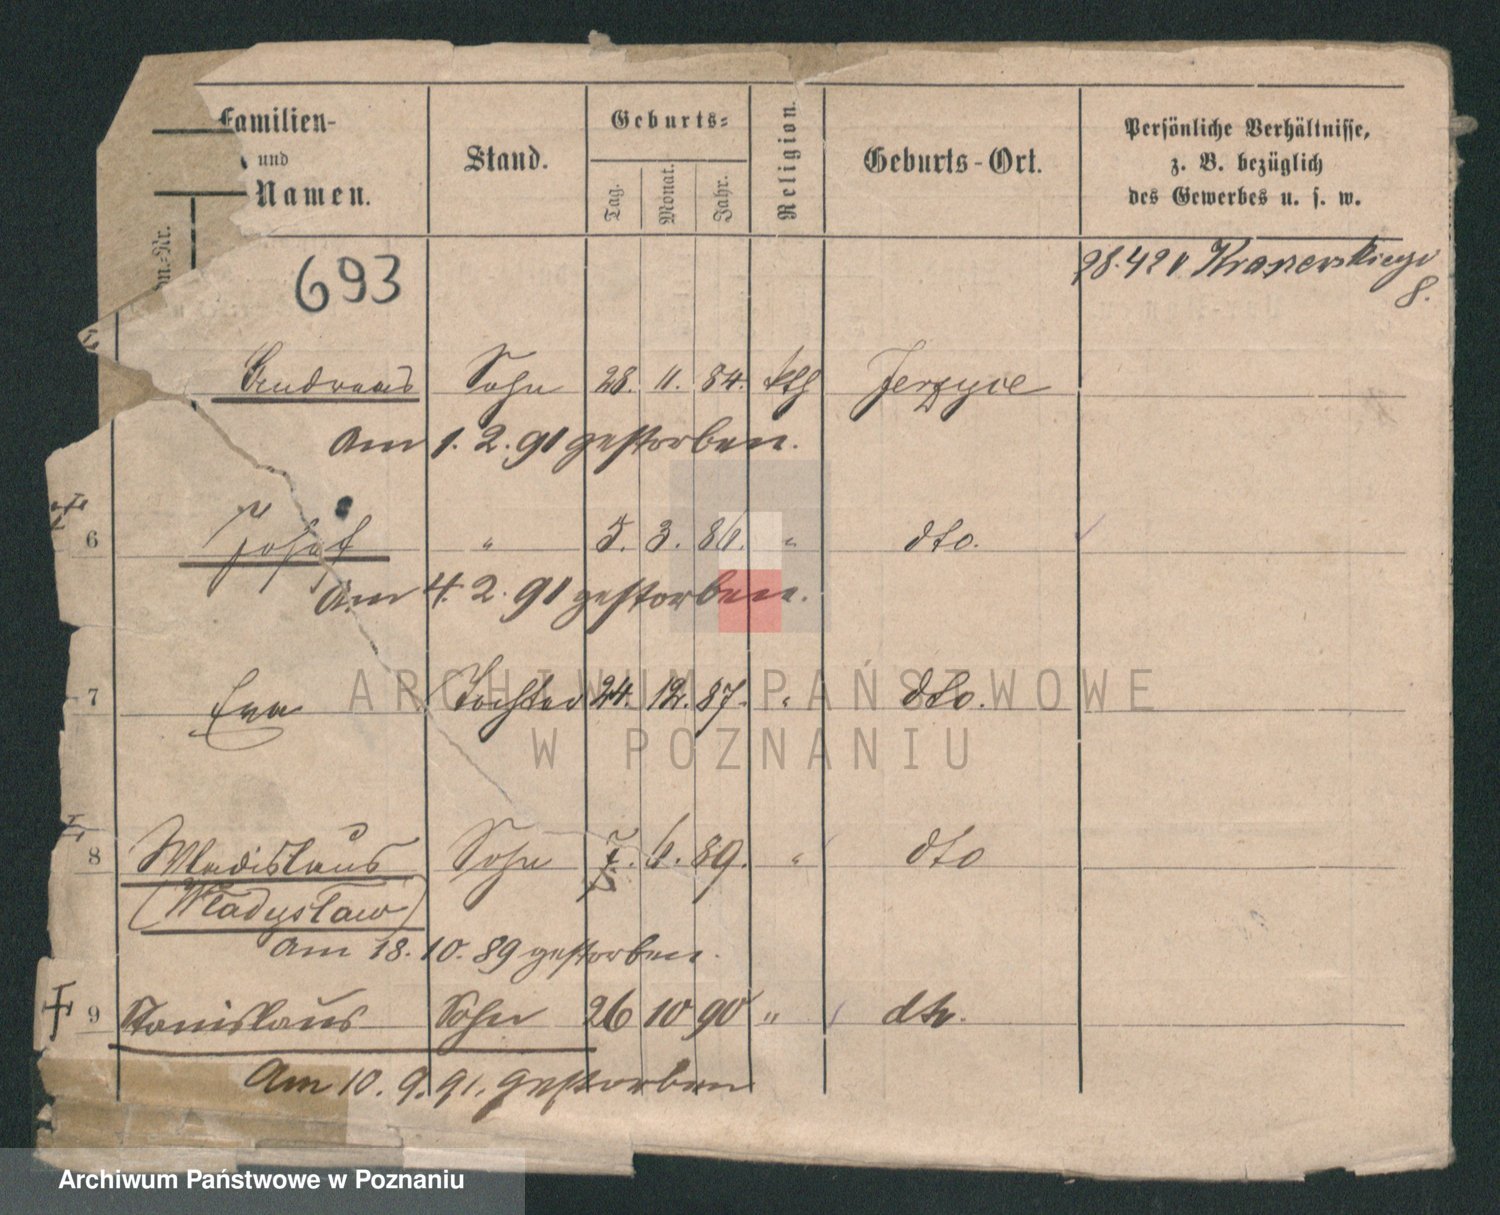 Familien-
und
Namen.
Stand.
Geburts-
Tag.
Monat.
Jahr.
Religion.
Geburts-Ort.
Persönliche Verhältnisse,
z. B. bezüglich
des Gewerbes u. s. w.
n.-Nr.
693
28.4 21 Kraszewskiego
8.
Andreas Sohn 28. 11. 84. kth Jerzyce
Am 1. 2. 91 gestorben.
6 Josef " 5. 3. 86. " dto.
Am 4. 2. 91 gestorben.
7 Eva Tochter 24. 12. 87. " dto.
8 Wladislaus Sohn 7. 6. 89. " dto
(Władysław)
Am 18. 10. 89 gestorben.
9 Stanislaus Sohn 26 10 90 " dto.
Am 10. 9. 91. gestorben
ARCHIWUM PAŃSTWOWE
W POZNANIU
Archiwum Państwowe w Poznaniu